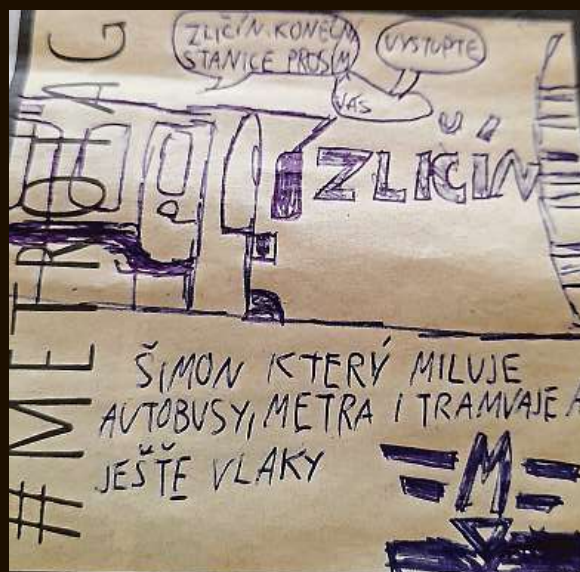 #METROTAG
ZLIČÍN. KONEČNÁ
STANICE PROSÍM
VÁS
VYSTUPTE
ZLIČÍN
ŠIMON KTERÝ MILUJE
AUTOBUSY, METRA I TRAMVAJE A
JEŠTĚ VLAKY
M